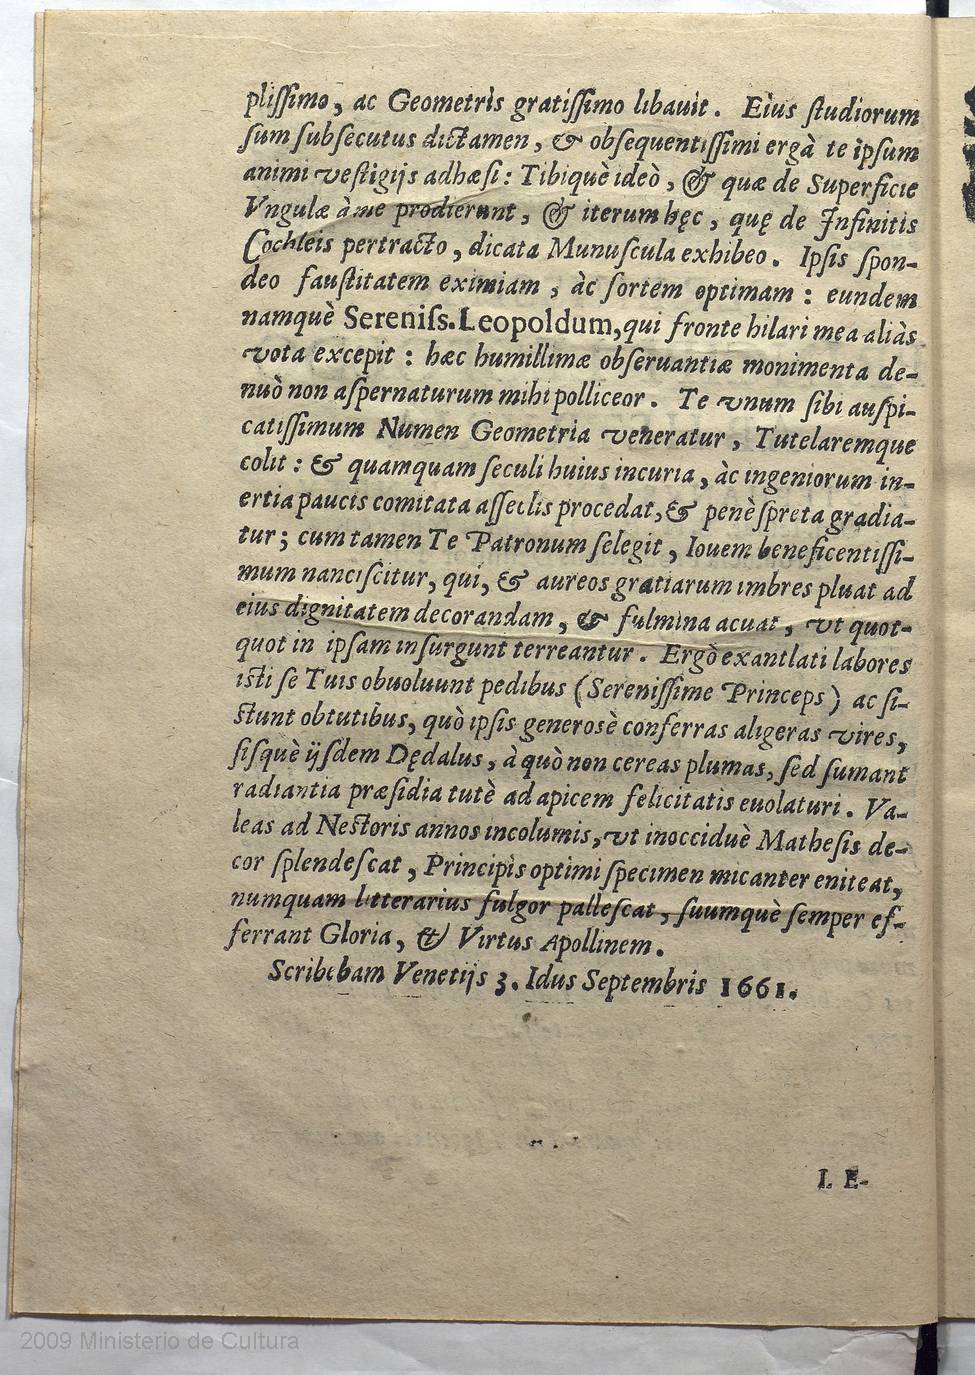 pliſſimo, ac Geometrìs gratiſſimo libauit. Eìus ſtudiorum
ſum ſubſecutus dictamen, & obſequentiſſimi ergà te ìpſum
animi veſtigijs adhæſi: Tibiquè ideò, & quæ de Superficie
Vngulæ àme prodierunt, & iterum hęc, quę de Infinitis
Cochleis pertracto, dicata Munuſcula exhibeo. Ipſis ſpon-
deo fauſtitatem eximiam, àc ſortem optimam: eundem
namquè Sereniſs. Leopoldum, qui fronte hilari mea aliàs
vota excepit: hæc humillimæ obſeruantiæ monimenta de-
nuò non aſpernaturum mihi polliceor. Te vnum ſibi auſpi-
catiſſimum Numen Geometria veneratur, Tutelaremque
colit: & quamquam ſeculi huius incuria, àc ingeniorum in-
ertia paucis comitata aſſeclis procedat, & penè ſpreta gradia-
tur; cum tamen Te Patronum ſelegit, Iouem beneficentiſſi-
mum nanciſcitur, qui, & aureos gratiarum imbres pluat ad
eius dignitatem decorandam, & fulmina acuat, vt quot-
quot in ipſam inſurgunt terreantur. Ergò exantlati labores
iſti ſe Tuis obuoluunt pedibus (Sereniſſime Princeps) ac ſi-
ſtunt obtutibus, quò ipſis generosè conferras aligeras vires,
ſiſquè ijſdem Dędalus, à quò non cereas plumas, ſed ſumant
radiantia præſidia tutè ad apicem felicitatis euolaturi. Va-
leas ad Neſtoris annos incolumis, vt inocciduè Matheſis de-
cor ſplendeſcat, Principìs optimi ſpecimen micanter eniteat,
numquam litterarius fulgor palleſcat, ſuumquè ſemper ef-
ferrant Gloria, & Virtus Apollinem.
Scribebam Venetijs 3. Idus Septembris 1661.
I. E-
2009 Ministerio de Cultura